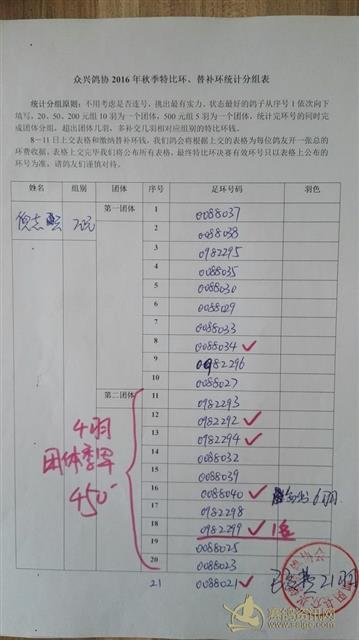 众兴鸽协 2016 年秋季特比环、替补环统计分组表
统计分组原则：不用考虑是否连号，挑出最有实力、状态最好的鸽子从序号 1 依次向下
填写，20、50、200 元组 10 羽为一个团体，500 元组 5 羽为一个团体，统计完环号的同时完
成团体分组，超出团体几羽，多补交几羽相对应组别的特比环钱。
8－11 日上交表格和缴纳替补环钱，我们鸽会将根据上交的表格为每位鸽友开一张总的
环费收据。表格上交完毕我们将公布所有表格。最终特比环决赛有效环号只以表格上公布的
环号为准，请鸽友们谨慎对待。
姓名 组别 团体 序号 足环号码 羽色
第一团体 1 0088037
2 0088038
3 0982295
4 0088035
5 0088030
6 0088029
7 0088033
8 0088034 ✓
9 0982296
10 0088027
第二团体 11 0982293
12 0982292 ✓
13 0982294 ✓
14 0088032
15 0088039
16 0088040 ✓
17 0982298
18 0982299 ✓
19 0088025
20 0088023
21 0088021 ✓
4羽
团体季军
450